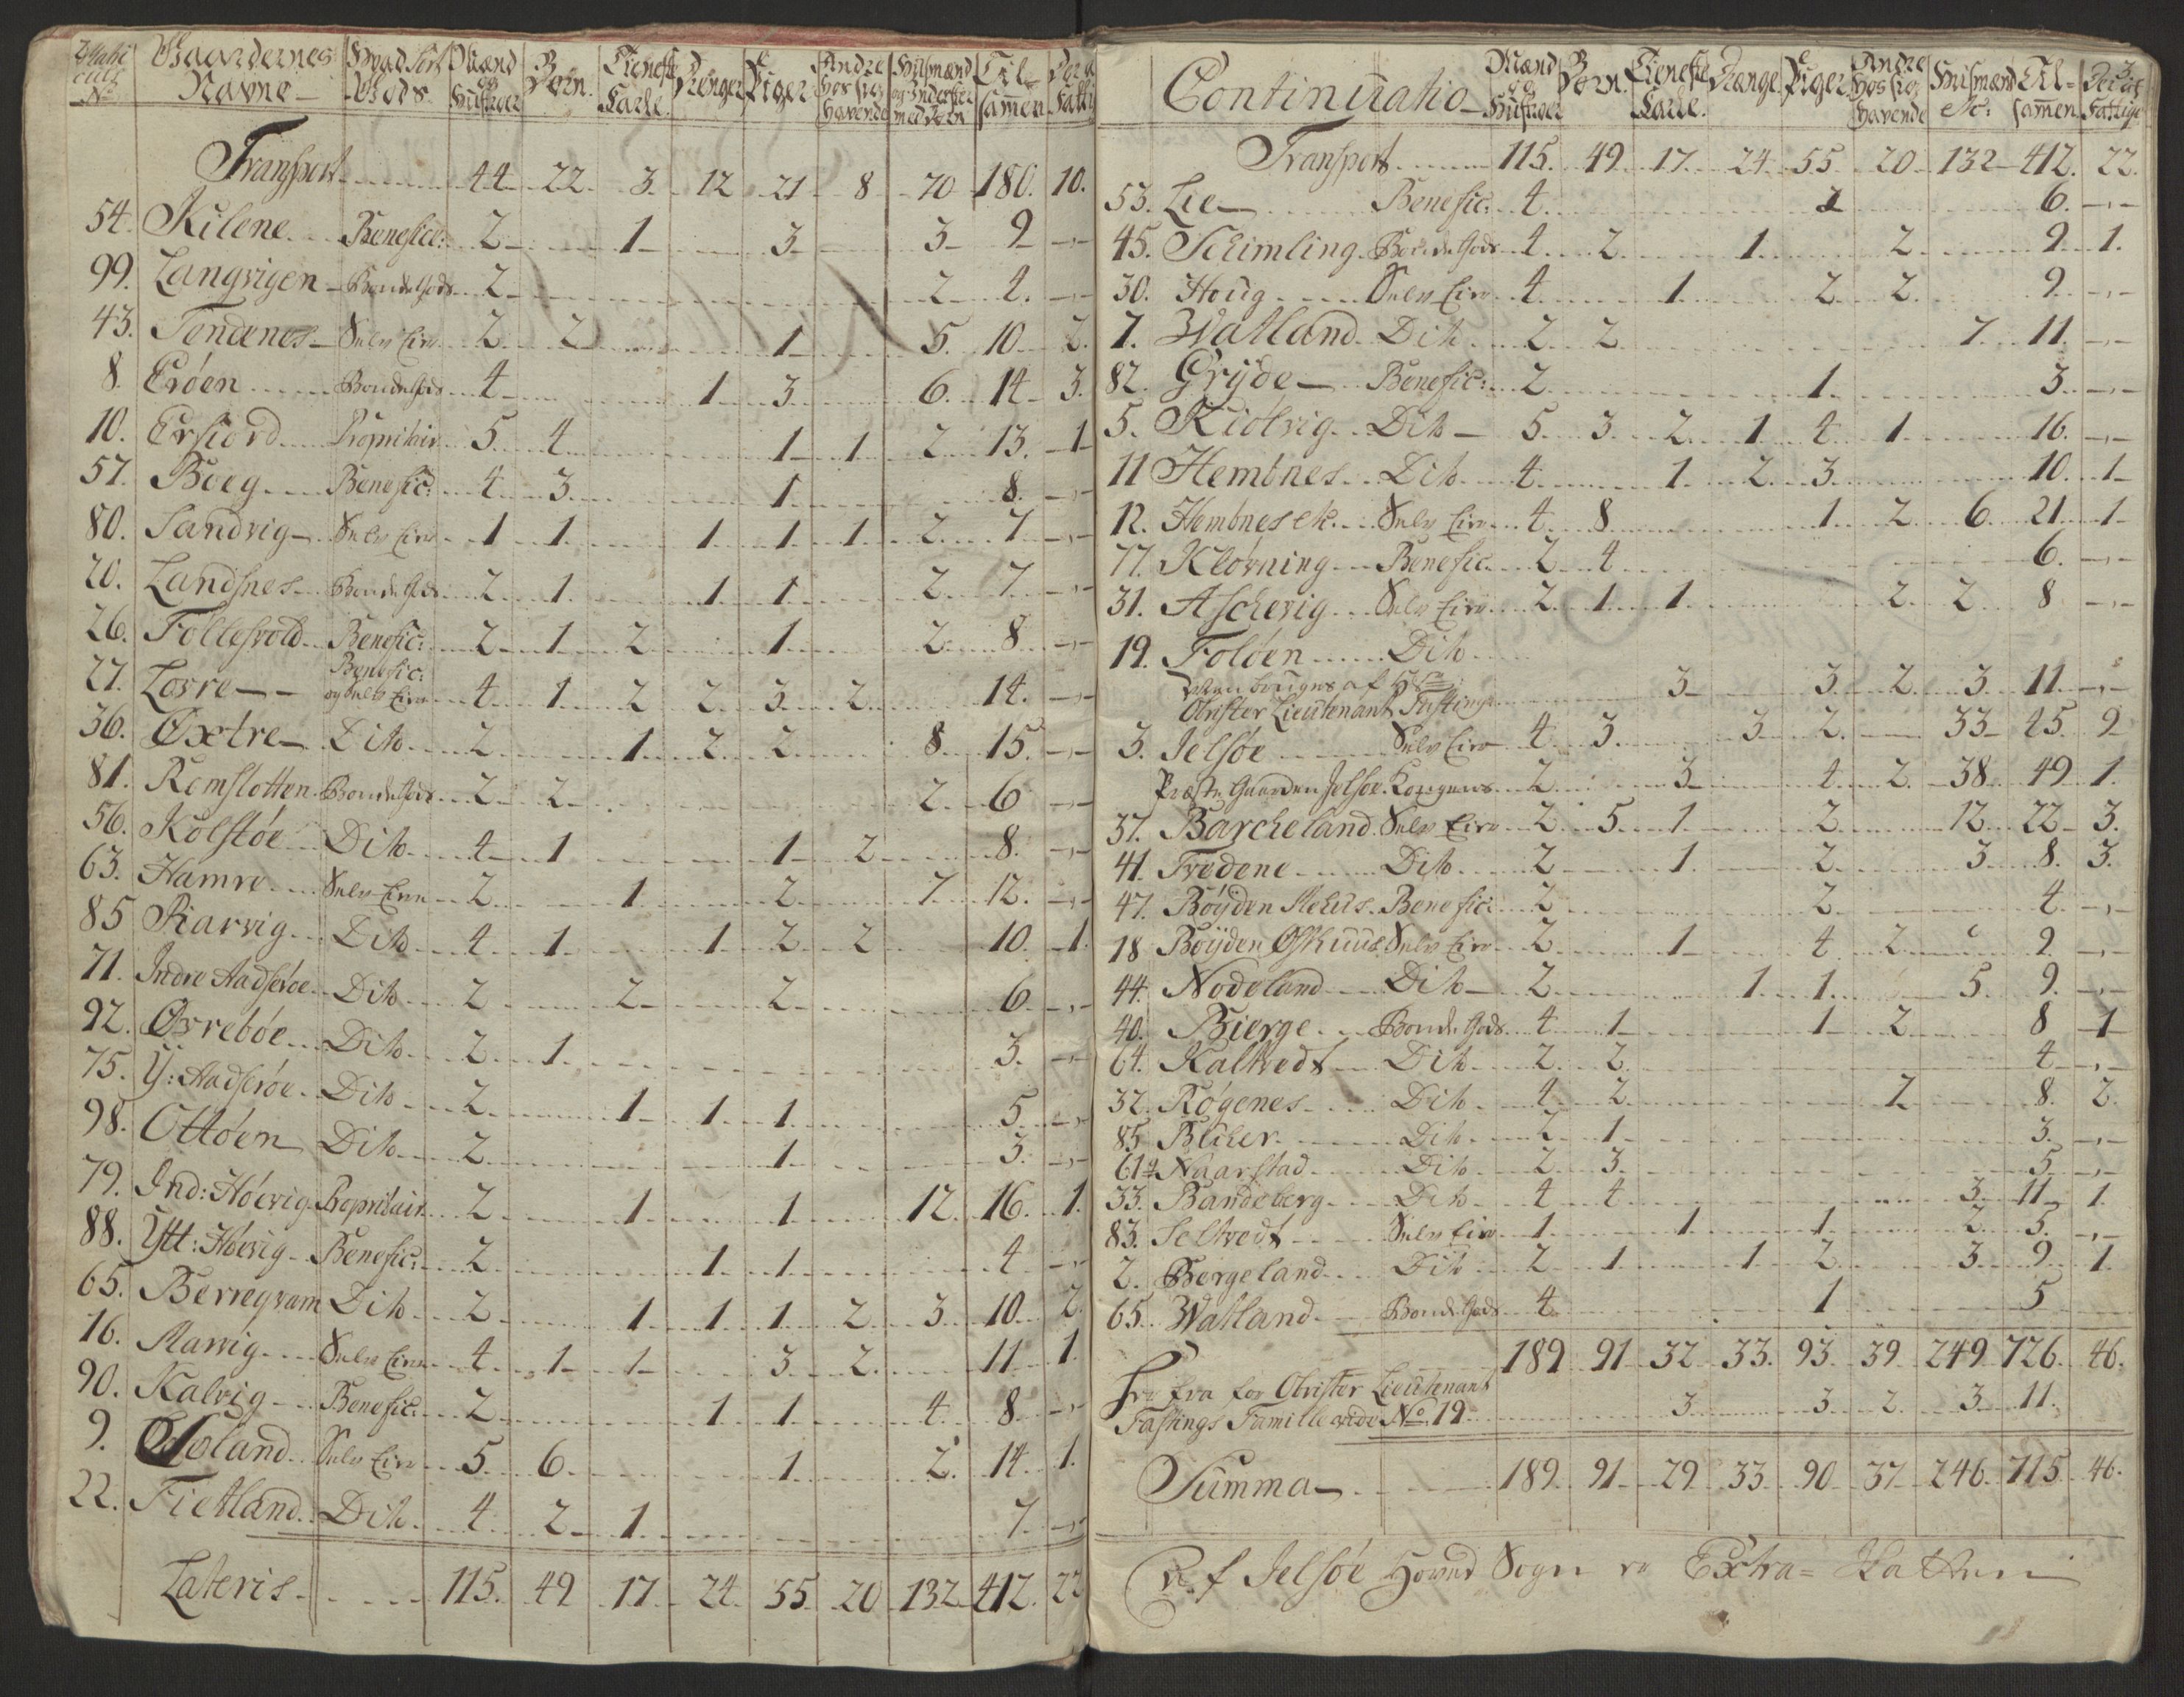 Matriculs No Gaardernes Navne Hvad Sort Gods Mænd og Hustruer Børn Tieneste Karle Drenger Piger Andre hos sig havende Husmænd og Inderster med Børn Tilsammen
Transport 44 22 3 12 21 8 70 180. 10.
54. Kilene Benefice: 2 1 3 3 9 -,-
99. Langvigen BondeGods 2 2 4. -,-
43. Tendenes Selv Eier 2 2 1 5. 10 2.
8. Erøen BondeGods 4 1 3 6. 14 3.
10. Erfiord Propritair 5 4 1 1 2 13. 1
57. Boeg Benefic: 4 3 1 8. -,-
80. Sandvig Selv Eier 1 1 1 1 1 2 7 -,-
20. Landsnes Bonde Gods 2 1 1 1 2 7 -,-
26. Follesvold Benefic: 2 1 2 1 2 8 -,-
27. Lovre Benefic: og Selv Eier 4 1 2 2 3 2 14. -,-
36. Øxtre Dito 2 1 2 2 8 15. -,-
81. Remslotten BondeGods 2 2 2 6 -,-
56. Kolstøe Dito 4 1 1 2 8. -,-
63. Hamre Selv Eier 2 1 2 7 12. -,-
85 Karvig Dito 4 1 1 2 2 10. 1.
71. Indre Aadserøe Dito 2 2 2 6 -,-
92. Ovrebøe Dito 2 1 3. -,-
75. Y: Aadserøe Dito 2 1 1 1 5 -,-
98. Ottøen Dito 2 1 3. -,-
79. Ind: Høevig Propritair 2 1 1 12. 16. 1.
88. Ytt: Høevig Benefic: 2 1 1 4 -,-
65. Berregvam Dito 2 1 1 1 2 3 10. 2.
16. Marvig Selv Eier 4 1 1 3 2 11 1.
90. Kalvig Benefic: 2 1 1 4. 8 -,-
9. Søland Selv Eier 5 6 1 2. 14. 1.
22. Fietland Dito 4 2 1 7. -,-
Lateris 115. 49 17 24. 55 20 132. 412. 22
Continuatio Mænd og Hustruer Børn. Tieneste Karle. Drange. Piger. Andre hos sig havende Husmænd etc: Tilsammen Fattige
Transport 115. 49. 17. 24. 55. 20 132 412. 22.
53. Lie Benefic: 4. 2 6. -,-
45. Schimling BondeGods 4 2 1 2 9 1.
30. Houg Selv Eier 4 1 2 2. 9 -,-
7. Watland Dito 2 2 7. 11. -,-
82. Gryde Benefic: 2 1 3. -,-
5. Kiølvig Dito 5. 3. 2. 1 4 1 16. -,-
11 Hembnes Dito 4. 1 2 3 10. 1
12. Hembnes etc. Selv Eier 4 8 1 2 6. 21 1
77. Kløvning Benefic. 2 4 6. -,-
31. Aschevig Selv Eier 2 1 1 2 2 8 -,-
19. Foløen Dito
som bruges af Hr
Obrister Lieutenant Fasting 3 3 2 3 11. -,-
3. Jelsøe Selv Eier 4 3 3 2. 33 45. 9
Præste Gaarden Jelsøe Kongens 2 3 4 2. 38. 49 1.
37. Barcheland Selv Eier 2 5 1 2 12 22 3.
41. Tvedene Dito 2 1 2 3 8. 3.
47. Bøyden Mehus Benefic: 2 2 4 -,-
18 Bøyden Østhuus Selv Eier 2 1 4. 2 9. -,-
44. Nodeland Dito 2 1 1. 5. 9. -,-
40. Bierge BondeGods 4 1 1 2 8 1
64. Kaltvedt Dito 2 2 4 -,-
32. Røgenes Dito 4 2 2 8. 2.
85. Blicher Dito 2 1 3. -,-
61 4 Naarstad Dito 2. 3. 5. -,-
33. Bandeberg Dito 4 4 3. 11 1.
83. Seltvedt Selv Eier 1 1 1 2. 5. -,-
2. Bergeland Dito 2 1 1 2 3 9 1.
65. Watland BondeGods 4 1 5
189 91 32 33. 93. 39 249 726. 46.
fra for Obrister Lieutenant
Fastings Famillie vide No. 19 3 3 2. 3 11.
Summa 189. 91 29 33 90 37 246. 715 46.
af Jelsøe Hoved Sogn Extra=